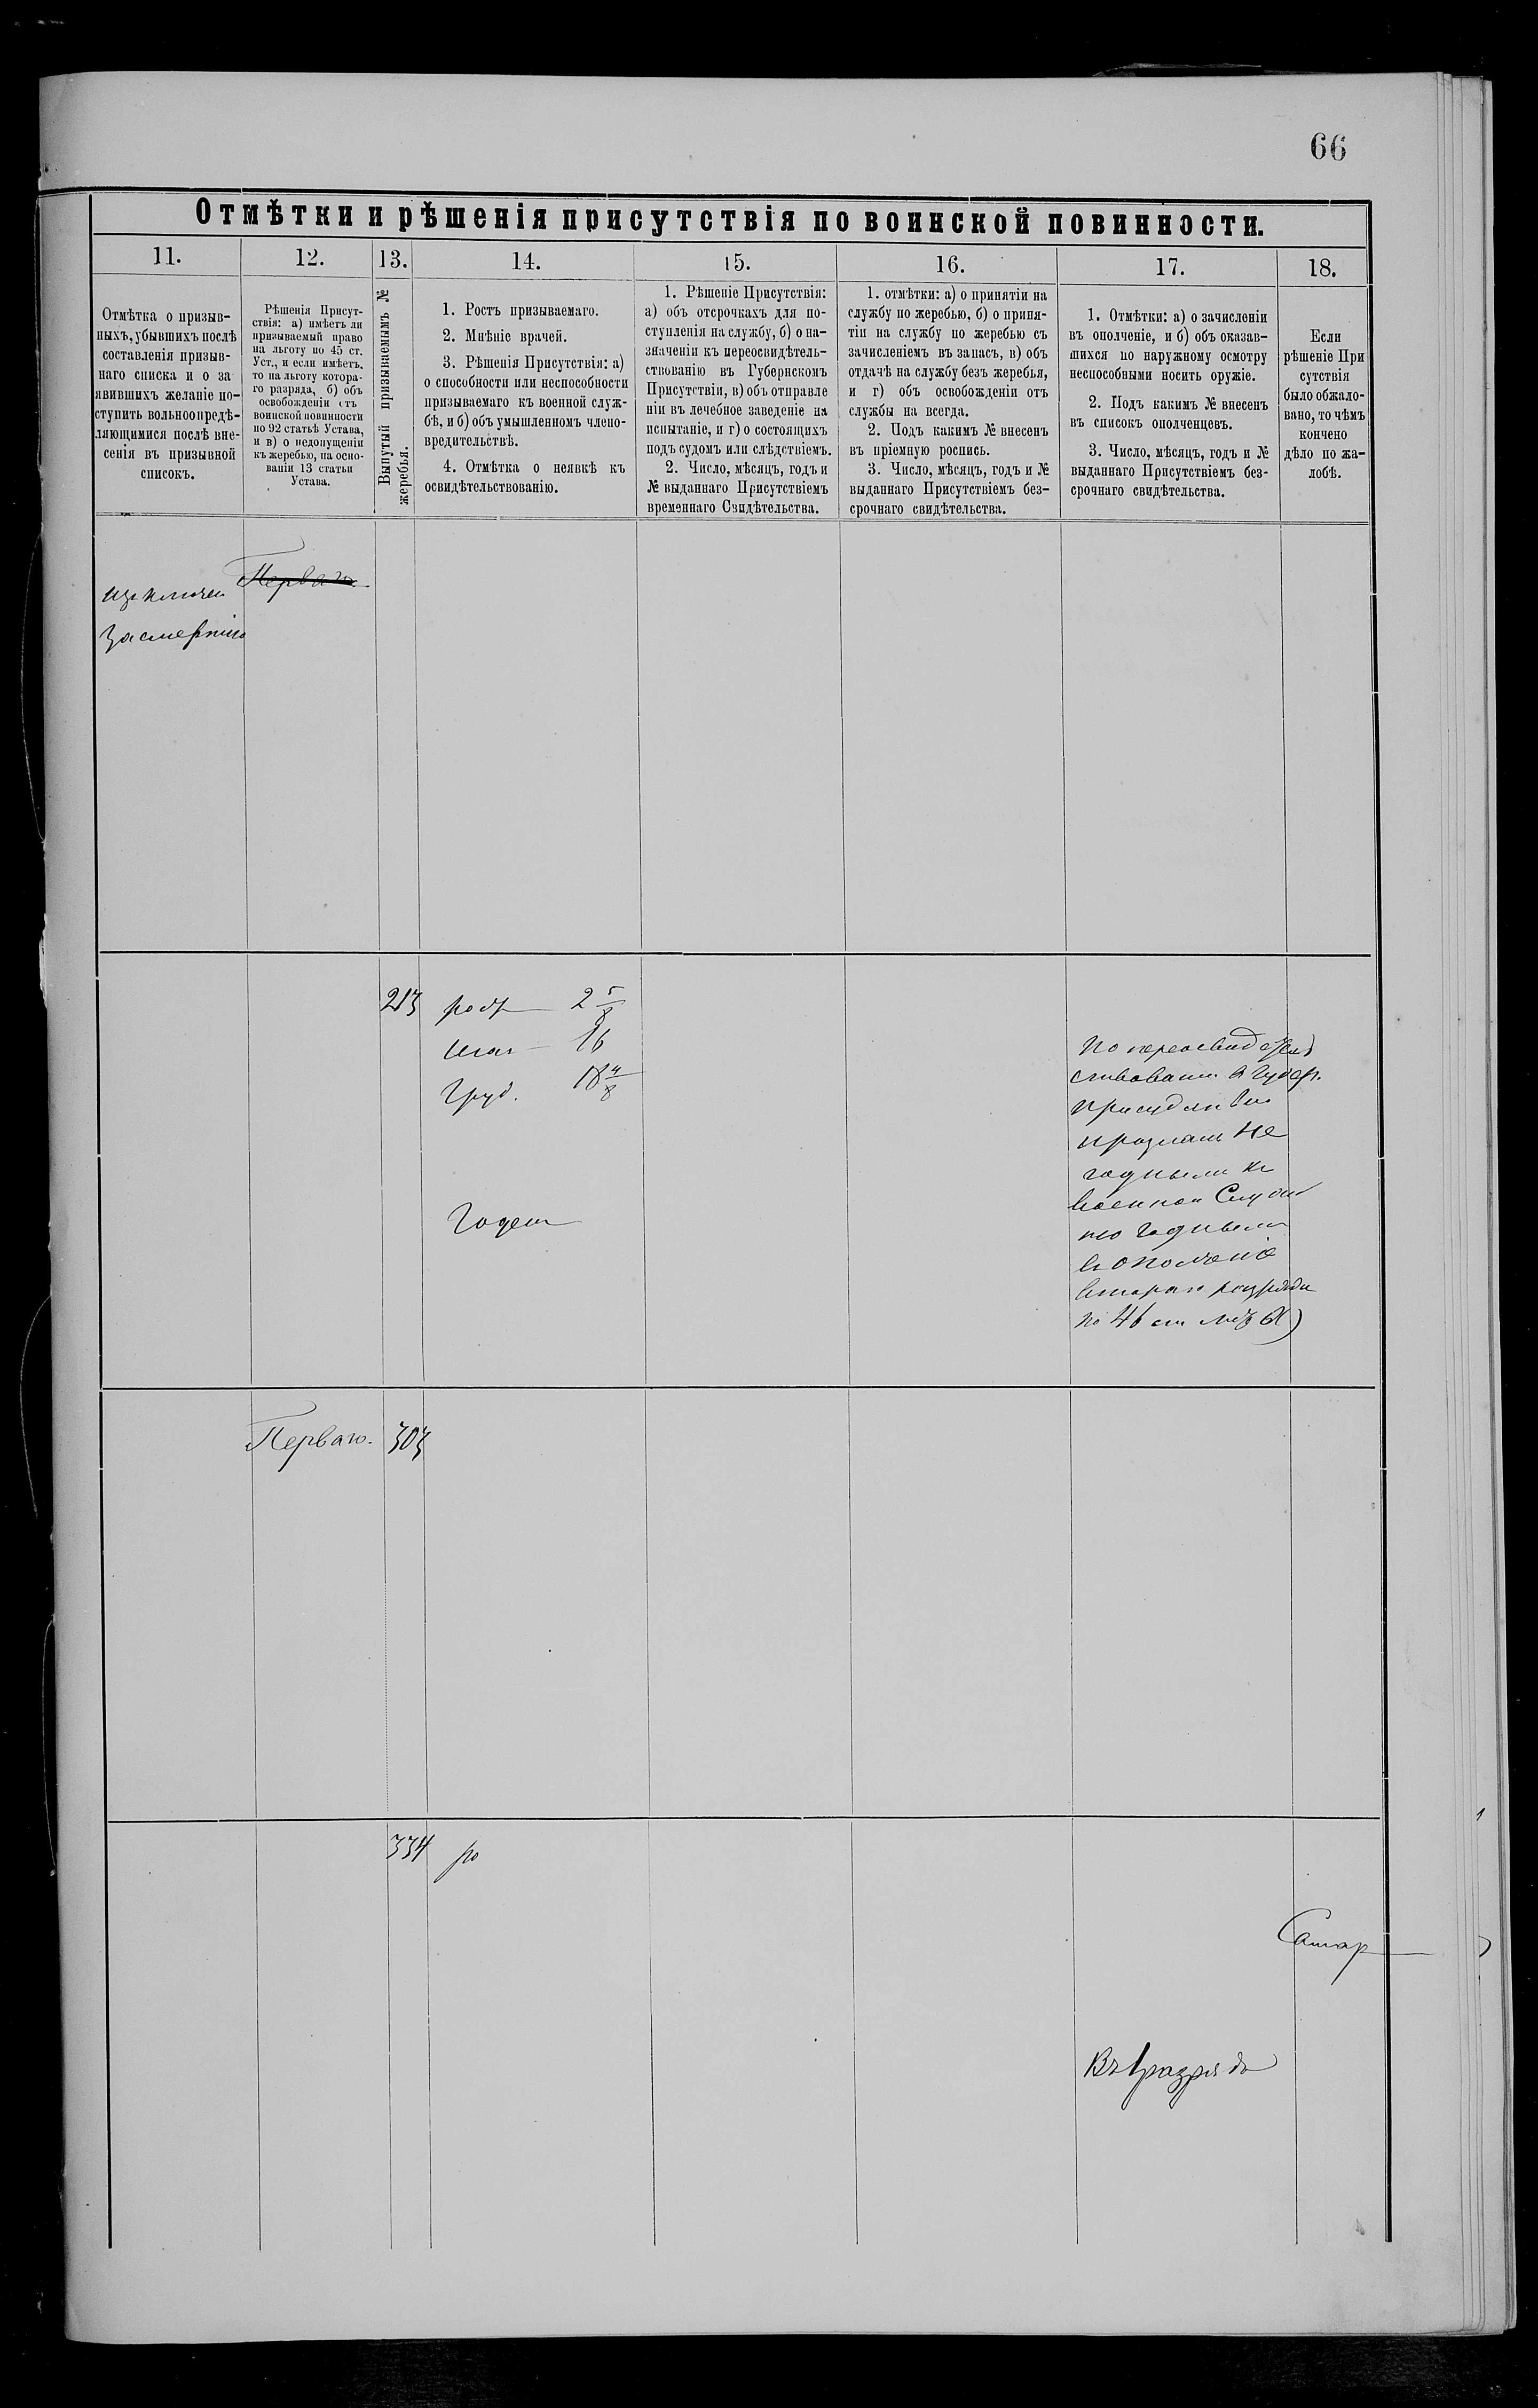 66
Отмѣтки и рѣшенія присутствія по воинской повинности.
11.
12.
13.
14.
15.
16.
17.
18.
Отмѣтка о призыв-
ныхъ, убывшихъ послѣ
составленія призыв-
наго списка и о за
явившихъ желаніе по-
ступить вольноопредѣ-
ляющимися послѣ вне-
сенія въ призывной
списокъ.
Рѣшенія Присут-
ствія: а) имѣетъ ли
призываемый право
на льготу по 45 ст.
Уст., и если имѣетъ,
то на льготу котора-
го разряда, б) объ
освобожденіи отъ
воинской повинности
по 92 статьѣ Устава,
и в) о недопущеніи
къ жеребью, на осно-
ваніи 13 статьи
Устава.
Вынутый призываемымъ №
жеребья.
1. Ростъ призываемаго.
2. Мнѣніе врачей.
3. Рѣшенія Присутствія: а)
о способности или неспособности
призываемаго къ военной служ-
бѣ, и б) объ умышленномъ члено-
вредительствѣ.
4. Отмѣтка о неявкѣ къ
освидѣтельствованію.
1. Рѣшеніе Присутствія:
а) объ отсрочкахъ для по-
ступленія на службу, б) о на-
значеніи къ переосвидѣтель-
ствованію въ Губернскомъ
Присутствіи, в) объ отправле
ніи въ лечебное заведеніе на
испытаніе, и г) о состоящихъ
подъ судомъ или слѣдствіемъ.
2. Число, мѣсяцъ, годъ и
№ выданнаго Присутствіемъ
временнаго Свидѣтельства.
1. отмѣтки: а) о принятіи на
службу по жеребью, б) о приня-
тіи на службу по жеребью съ
зачисленіемъ въ запасъ, в) объ
отдачѣ на службу безъ жеребья,
и г) объ освобожденіи отъ
службы на всегда.
2. Подъ какимъ № внесенъ
въ пріемную роспись.
3. Число, мѣсяцъ, годъ и №
выданнаго Присутствіемъ без-
срочнаго свидѣтельства.
1. Отмѣтки: а) о зачисленіи
въ ополченіе, и б) объ оказав-
шихся по наружному осмотру
неспособными носить оружіе.
2. Подъ какимъ № внесенъ
въ списокъ ополченцевъ.
3. Число, мѣсяцъ, годъ и №
выданнаго Присутствіемъ без-
срочнаго свидѣтельства.
Если
рѣшеніе При
сутствія
было обжало-
вано, то чѣмъ
кончено
дѣло по жа-
лобѣ.
изключен
За смертію
Перваго
213
рост 2 5/8
16
Груд. 18 4/8
Годен
по переосвидѣтель
ствовании в Губер.
присудствии
признан не
годным к
военной Службѣ
но годным
в ополчение
втораго разряда
по 46 ст
Перваго.
303
334
ро
Въ 1 разрядъ